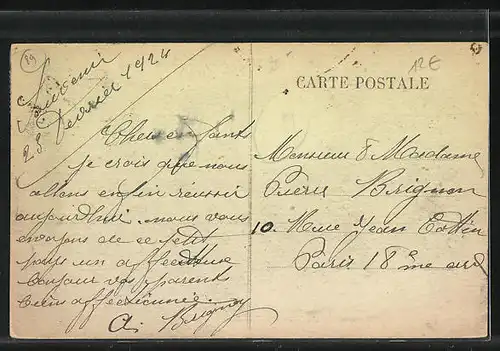 89
12€
Souvenir
23 Fevrier 1924
CARTE POSTALE
Chers enfants
je crois que nous
allons enfin réussir
aujourd'hui. nous vous
envoyons de ce petit
pays un affectueux
bonjour vos parents
bien affectionnés
A. Brignon
Monsieur & Madame
Pierre Brignon
10. Rue Jean Cottin
Paris 18eme arr